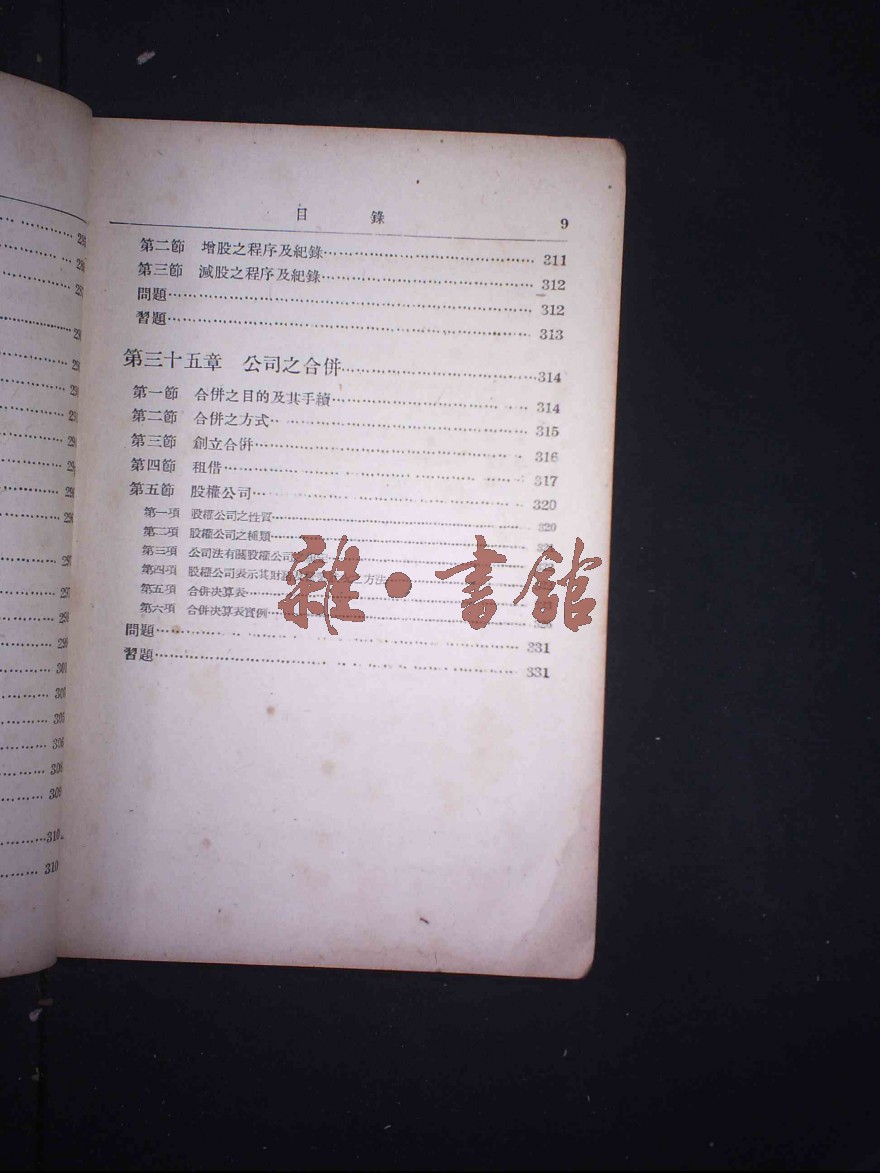 目 錄 9
第二節 增股之程序及紀錄 311
第三節 減股之程序及紀錄 312
問題 312
習題 313
第三十五章 公司之合併 314
第一節 合併之目的及其手續 314
第二節 合併之方式 315
第三節 創立合併 316
第四節 租借 317
第五節 股權公司 320
第一項 股權公司之性質 320
第二項 股權公司之種類
第三項 公司法有關股權公司
第四項 股權公司表示其財 之方法
第五項 合併決算表
第六項 合併決算表實例
問題 331
習題 331
雜·書館
297
298
309
310
310